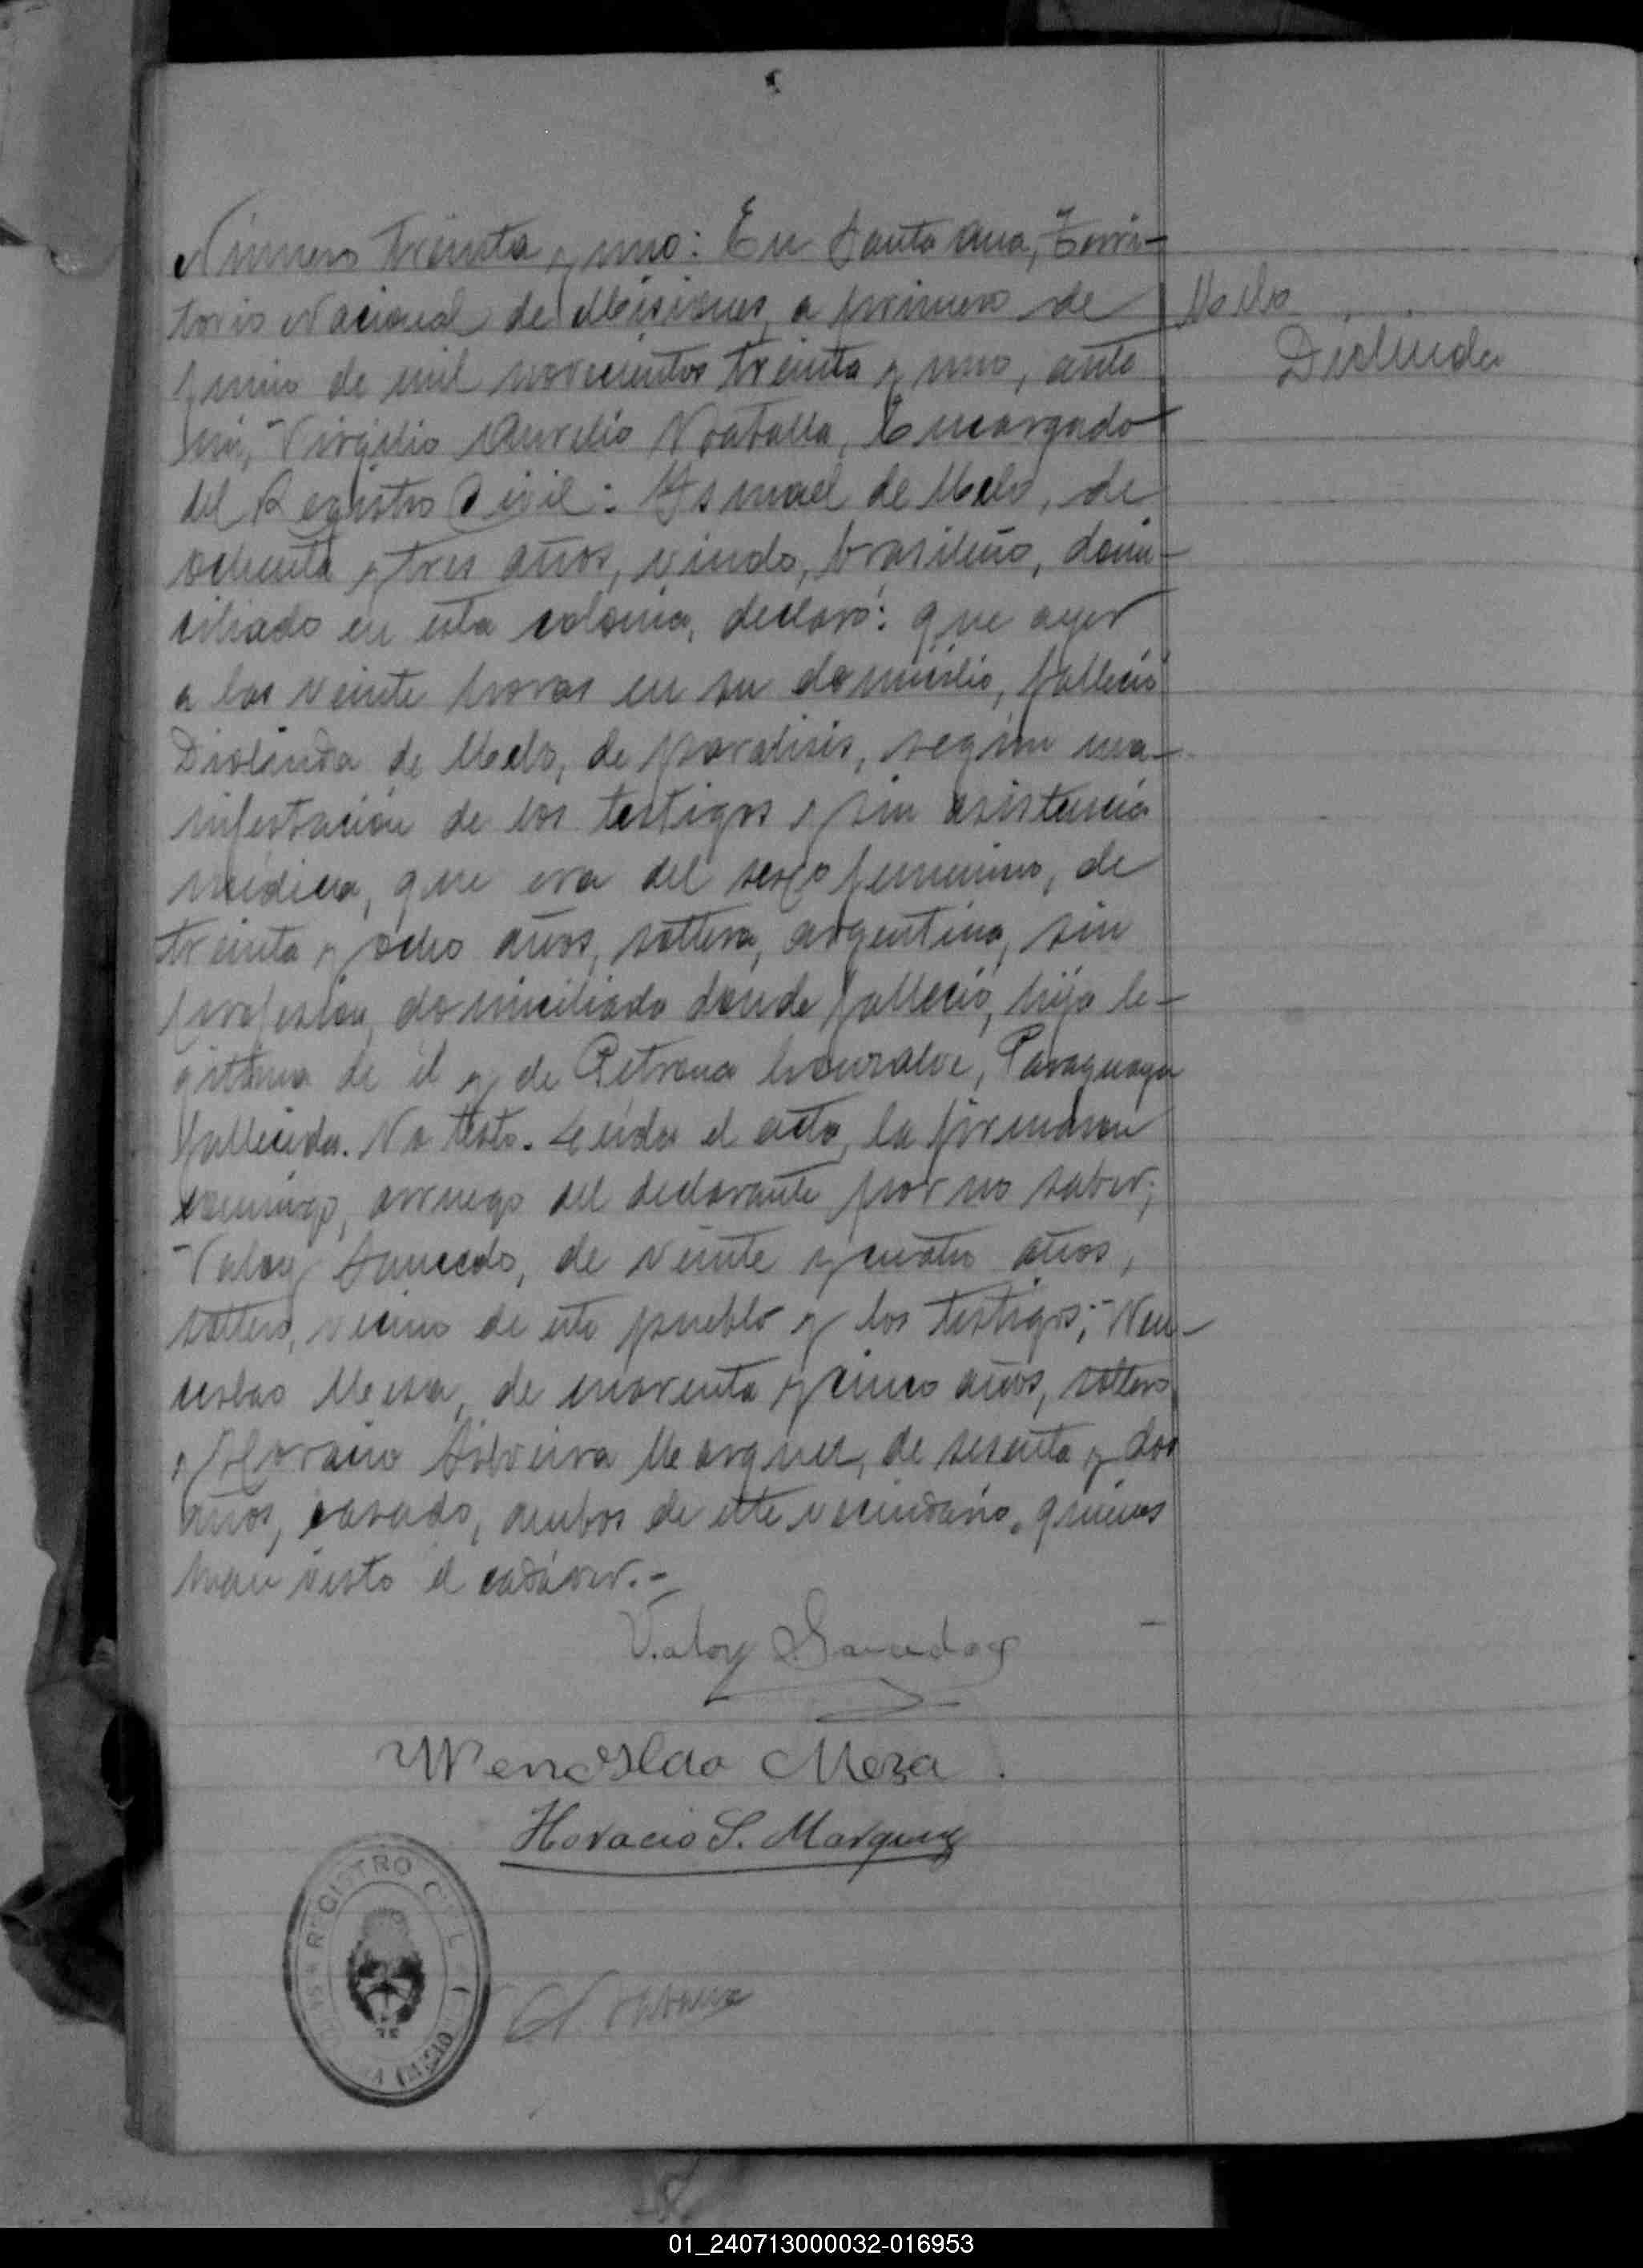 Número treinta y uno: En Santa Ana, Terri-
torio Nacional de Misiones, a primero de
junio de mil novecientos treinta y uno, ante
mí, Virgilio Aurelio Encargado
del Registro Civil: Ismael de Melo, de
ochenta y tres años, viudo, brasileño, domi-
ciliado en esta colonia, declaró: que ayer
a las veinte horas en su domicilio, falleció
Diolinda de Melo, de paralisis, según ma-
nifestación de los testigos y sin asistencia
médica, que era del sexo femenino, de
treinta y ocho años, soltera, argentina, sin
profesión, domiciliada donde falleció, hija le-
gitima de él y de Petrona Paraguaya
fallecida. No testó. Leída el acta, la firmaron
conmigo, arruego del declarante por no saber;
Valoy Saucedo, de veinte y cuatro años,
soltero, vecino de este pueblo y los testigos; Wen-
ceslao Mesa, de cuarenta y cinco años, soltero
y Horacio Silveira Marquez, de sesenta y dos
años, casado, ambos de este vecindario, quienes
han visto el cadáver.-
Melo
Diolinda
Valoy Saucedo
Wenceslao Meza.
Horacio S. Marquez
REGISTRO CIVIL
01_240713000032-016953